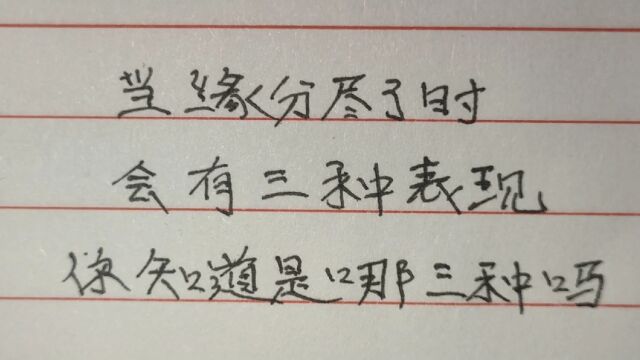 当缘分尽了时
会有三种表现
你知道是哪三种吗